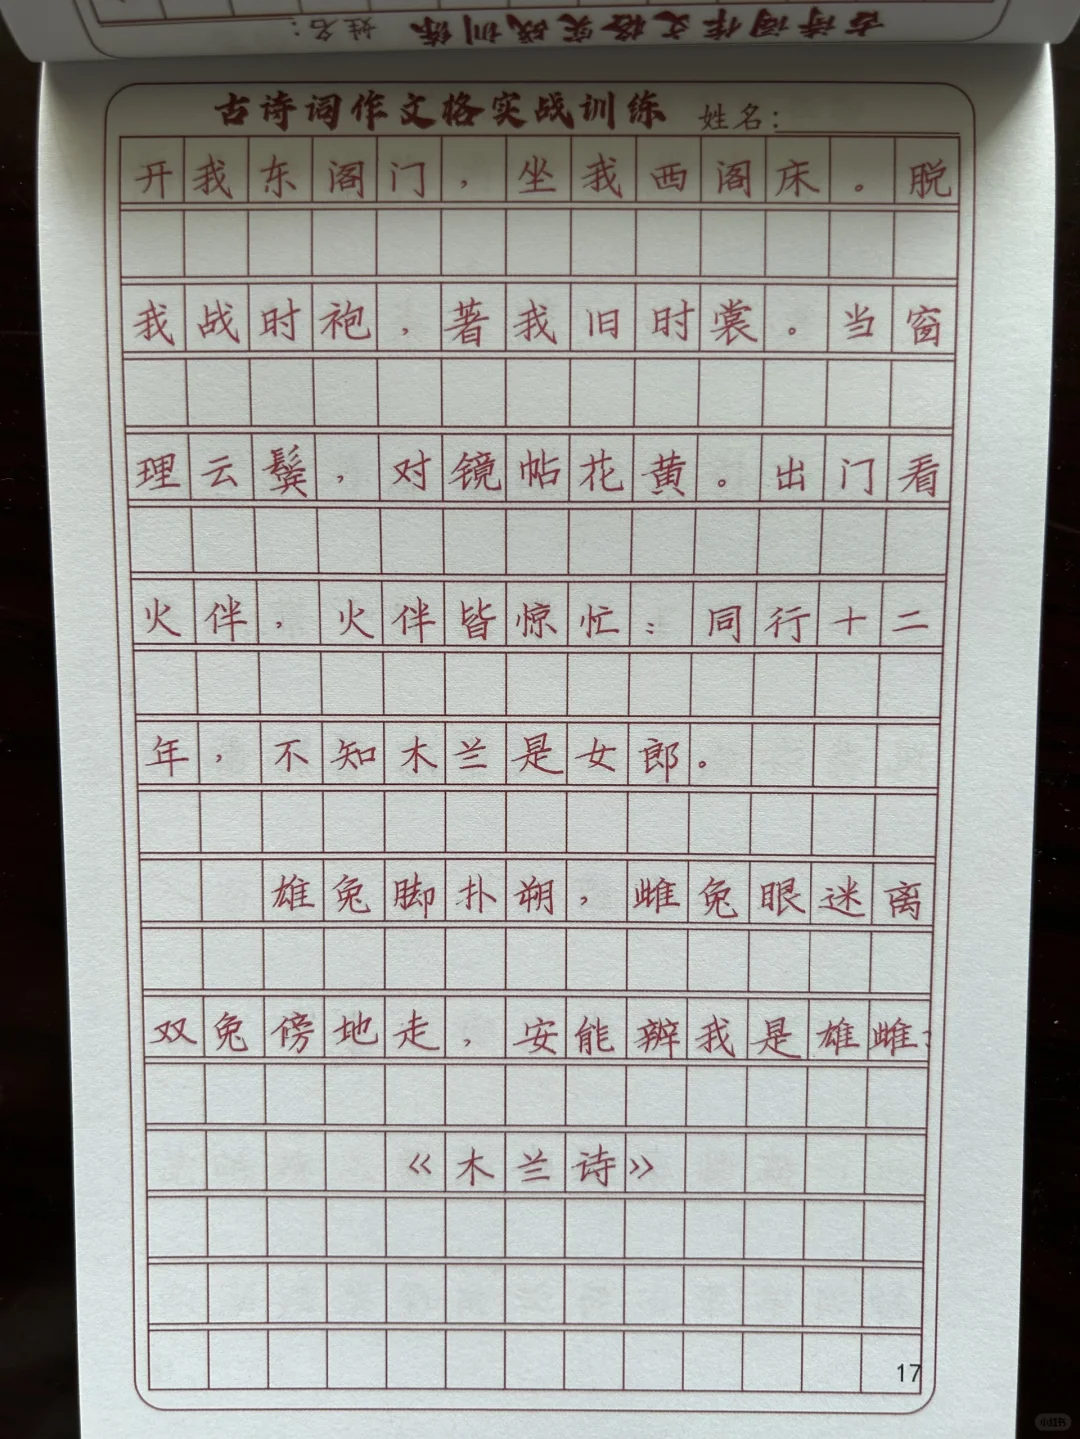 古诗词作文格实战训练 姓名:
古诗词作文格实战训练 姓名:
开我东阁门，坐我西阁床。脱
我战时袍，著我旧时裳。当窗
理云鬓，对镜帖花黄。出门看
火伴，火伴皆惊忙：同行十二
年，不知木兰是女郎。
雄兔脚扑朔，雌兔眼迷离
双兔傍地走，安能辨我是雄雌？
《木兰诗》
17
小红书